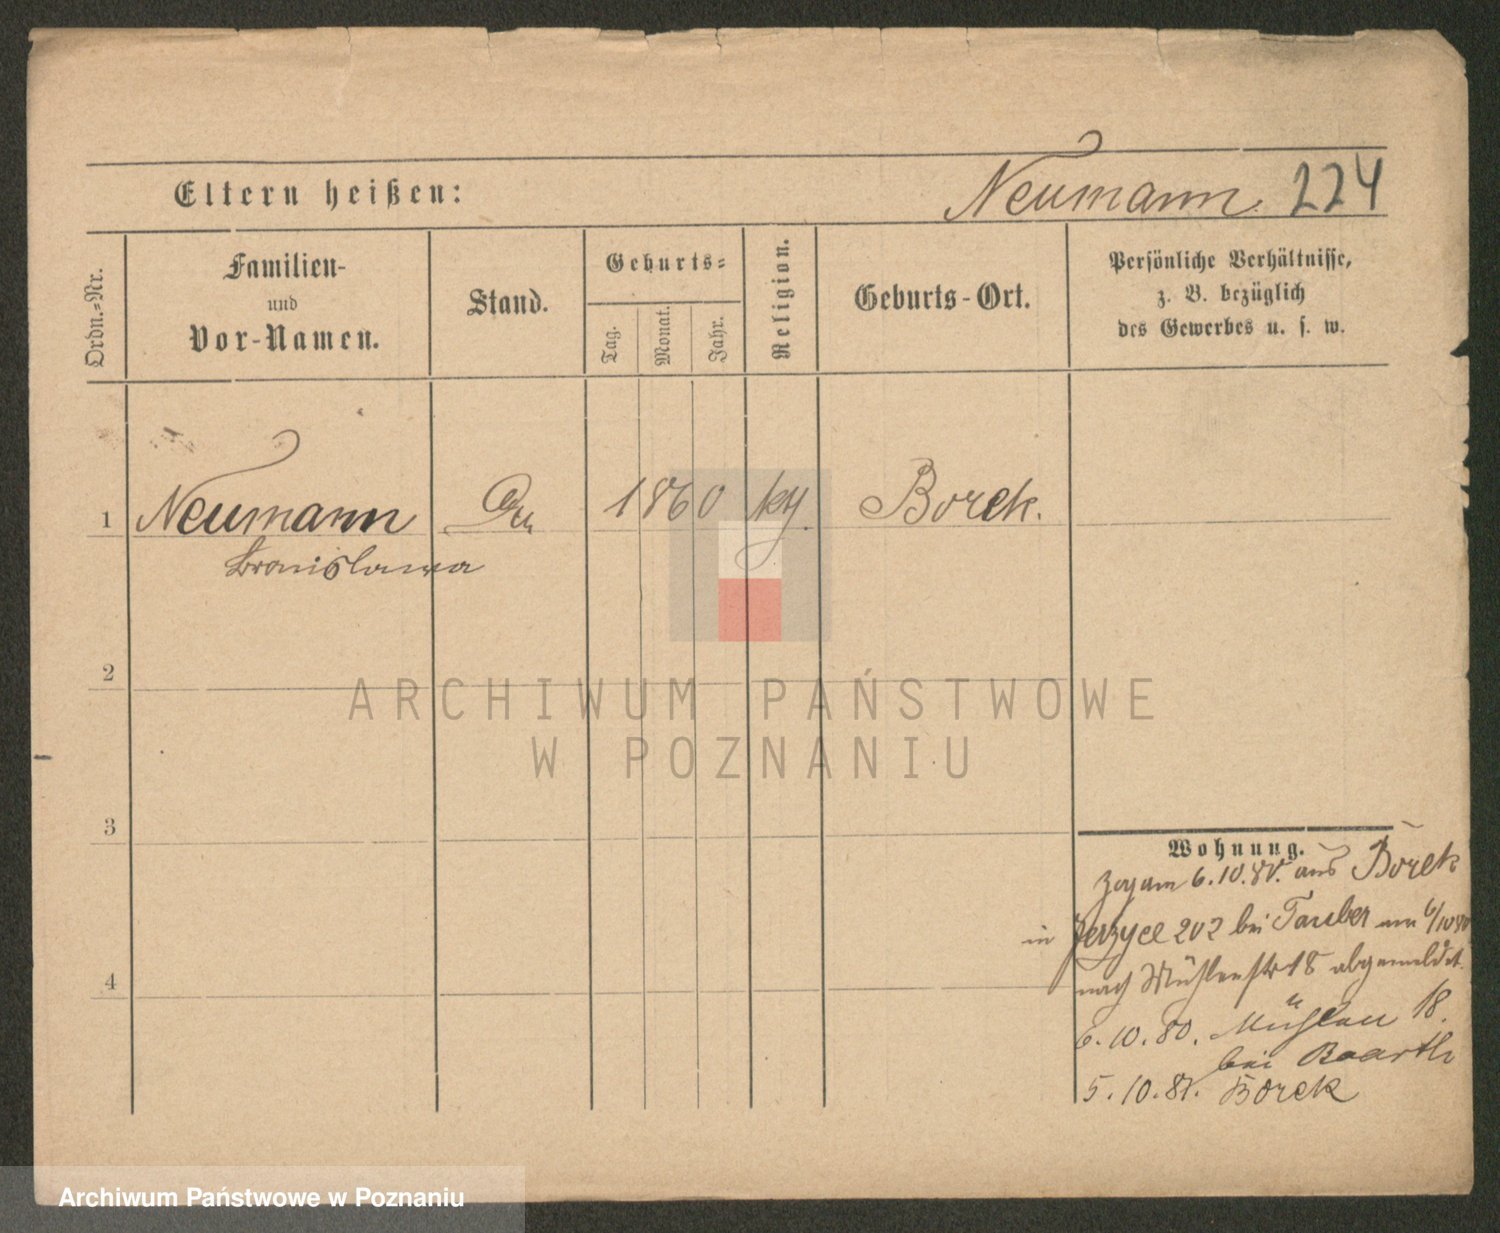 Eltern heißen:
Neumann 224
Ordn.-Nr.
Familien-
und
Vor-Namen.
Stand.
Geburts-
Tag.
Monat.
Jahr.
Religion.
Geburts-Ort.
Persönliche Verhältnisse,
z. B. bezüglich
des Gewerbes u. s. w.
1 Neumann 1860 kth. Borek.
Bronislawa
2
3
4
Wohnung.
Zog am 6.10.80. aus Borek
in Jerzyce 202 bei Tauber am 6/10 80
nach Mühlenstr 18 abgemeldet.
6.10.80. Mühlen 18.
bei Baarth
5.10.81. Borek
ARCHIWUM PAŃSTWOWE
W POZNANIU
Archiwum Państwowe w Poznaniu